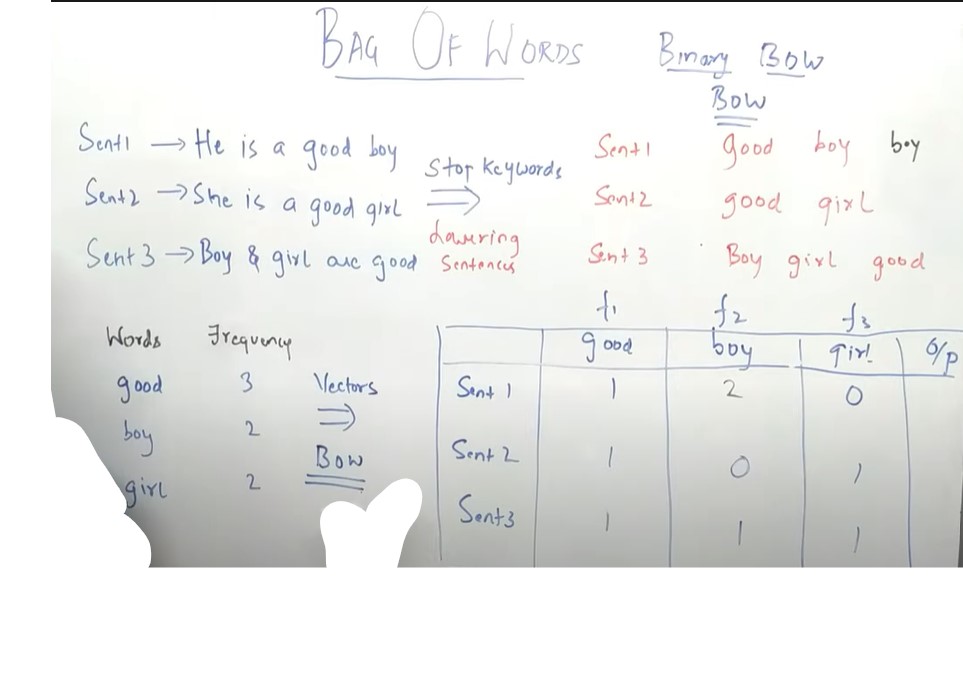 BAG OF WORDS
Binary BOW
BOW
Sent1 → He is a good boy
Sent2 → She is a good girl
Sent 3 → Boy & girl are good
Stop Keywords
⇒
Lowering
Sentences
Sent1 good boy boy
Sent2 good girl
Sent 3 Boy girl good
Words Frequency
good 3
boy 2
girl 2
Vectors
⇒
BOW
f1 f2 f3
good boy girl O/p
Sent 1 1 2 0
Sent 2 1 0 1
Sent3 1 1 1